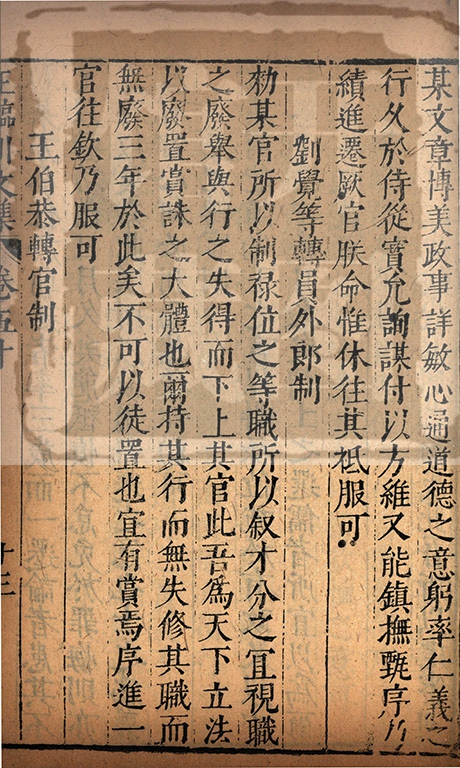 某文章博美政事詳敏心通道德之意躬率仁義之
行久於侍從寔允詢謀付以方維又能鎮撫甄序
績進遷厥官朕命惟休往其祗服可
劉覺等轉員外郎制
勑某官所以制祿位之等職所以叙才分之宜視職
之廢舉與行之失得而下上其官此吾爲天下立法
以廢置賞誅之大體也爾持其行而無失修其職而
無廢三年於此矣不可以徒置也宜有賞焉序進一
官往欽乃服可
王伯恭轉官制
王臨川文集 卷五十 十三